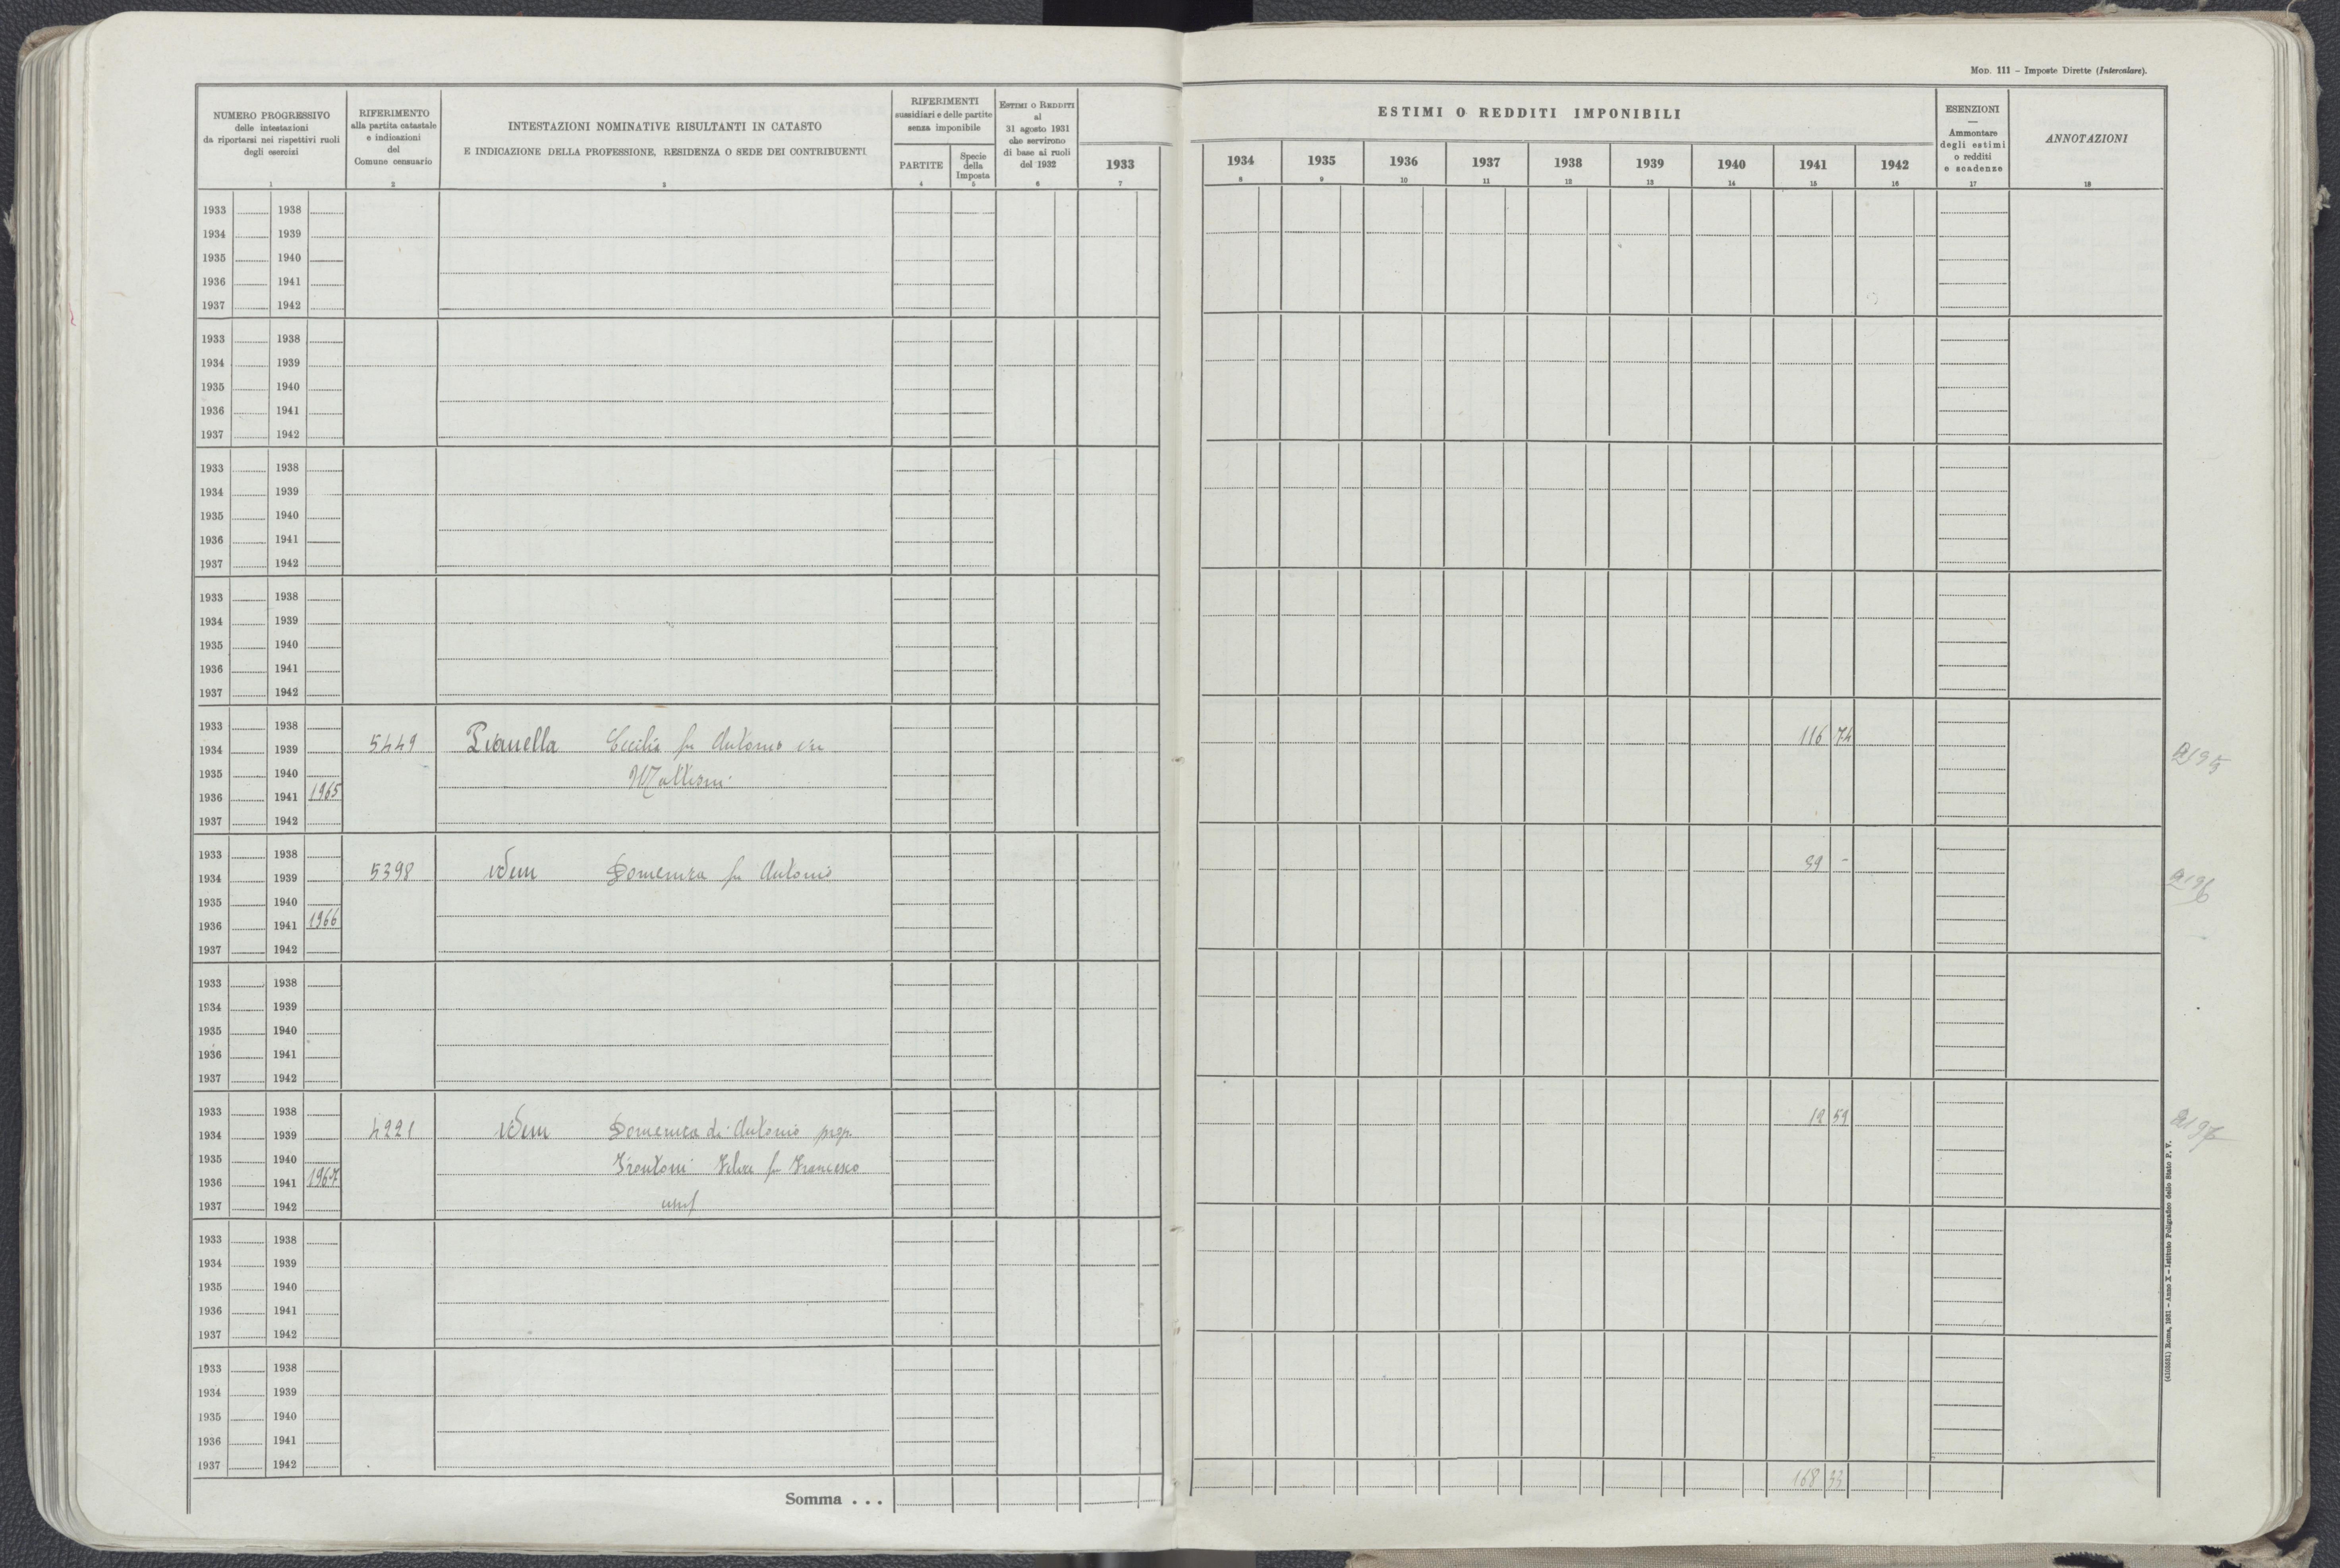 MOD. 111 – Imposte Dirette (Intercalare).
NUMERO PROGRESSIVO
delle intestazioni
da riportarsi nei rispettivi ruoli
degli esercizi
1
RIFERIMENTO
alla partita catastale
e indicazioni
del
Comune censuario
2
INTESTAZIONI NOMINATIVE RISULTANTI IN CATASTO
E INDICAZIONE DELLA PROFESSIONE, RESIDENZA O SEDE DEI CONTRIBUENTI
3
RIFERIMENTI
sussidiari e delle partite
senza imponibile
PARTITE
4
Specie
della
Imposta
5
ESTIMI O REDDITI
al
31 agosto 1931
che servirono
di base ai ruoli
del 1932
6
1933
7
ESTIMI O REDDITI IMPONIBILI
1934 1935 1936 1937 1938 1939 1940 1941 1942
8 9 10 11 12 13 14 15 16
ESENZIONI
—
Ammontare
degli estimi
o redditi
e scadenze
17
ANNOTAZIONI
18
1933 1938
1934 1939
1935 1940
1936 1941
1937 1942
1933 1938
1934 1939
1935 1940
1936 1941
1937 1942
1933 1938
1934 1939
1935 1940
1936 1941
1937 1942
1933 1938
1934 1939
1935 1940
1936 1941
1937 1942
1933 1938
1934 1939 5449 Pianella Cecilia fu Antonio in 116 74
1935 1940 Mattioni 2195
1936 1941 1965
1937 1942
1933 1938
1934 1939 5398 Idem Domenica fu Antonio 39 -
1935 1940 2196
1936 1941 1966
1937 1942
1933 1938
1934 1939
1935 1940
1936 1941
1937 1942
1933 1938
1934 1939 4221 Idem Domenica di Antonio prop. 12 59
1935 1940 Frontoni Felice fu Francesco 2197
1936 1941 1967
1937 1942 usuf
1933 1938
1934 1939
1935 1940
1936 1941
1937 1942
1933 1938
1934 1939
1935 1940
1936 1941
1937 1942
Somma . . . 168 33
(4105881) Roma, 1931 – Anno X – Istituto Poligrafico dello Stato P. V.